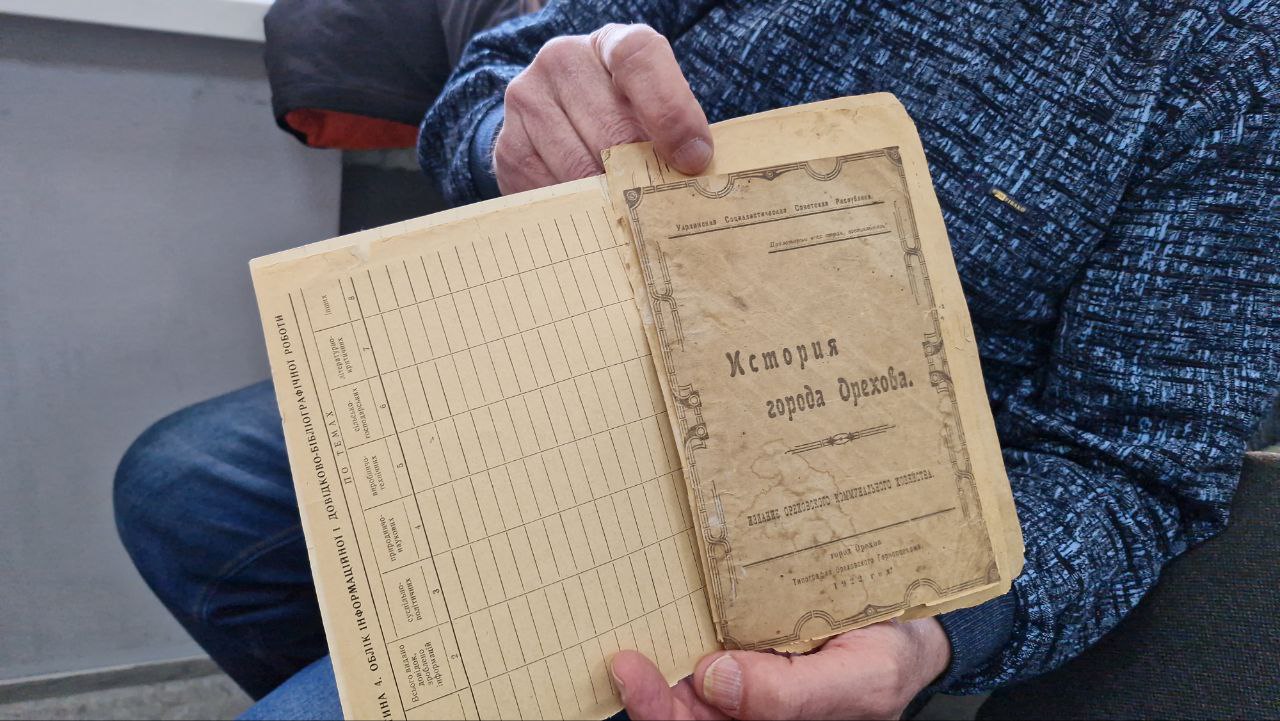 ИНА 4. ОБЛІК ІНФОРМАЦІЙНОЇ І ДОВІДКОВО-БІБЛІОГРАФІЧНОЇ РОБОТИ
ПО ТЕМАХ
Всього видано
довідок,
зроблено
інформацій
суспільно-
політичних
природничо-
наукових
виробничо-
технічних
сільсько-
господарських
літературно-
критичних
інших
2
3
4
5
6
7
8
Украинская Социалистическая Советская Республика.
Пролетарии всех стран, соединяйтесь!
История
города Орехова.
ИЗДАНИЕ ОРЕХОВСКОГО КОММУНАЛЬНОГО ХОЗЯЙСТВА.
город Орехов
Типография Ореховского
1922 год